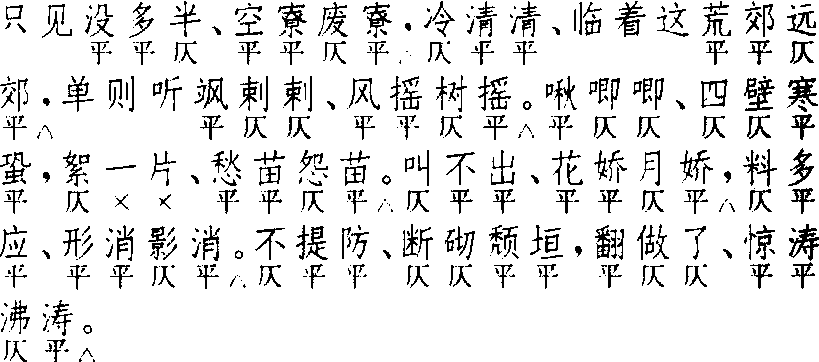 只见没多半、空寮废寮，冷清清、临着这荒郊远
平平仄平平仄平仄平平平平仄
郊，单则听飒剌剌、风摇树摇。啾唧唧、四壁寒
平△平仄仄平平仄平△平仄仄仄仄平
蛩，絮一片、愁苗怨苗。叫不出、花娇月娇，料多
平仄××平平仄平△仄平平平平仄平△仄平
应、形消影消。不提防、断砌颓垣，翻做了、惊涛
平平平仄平△仄平平仄仄平平平仄仄平平
沸涛。
仄平△